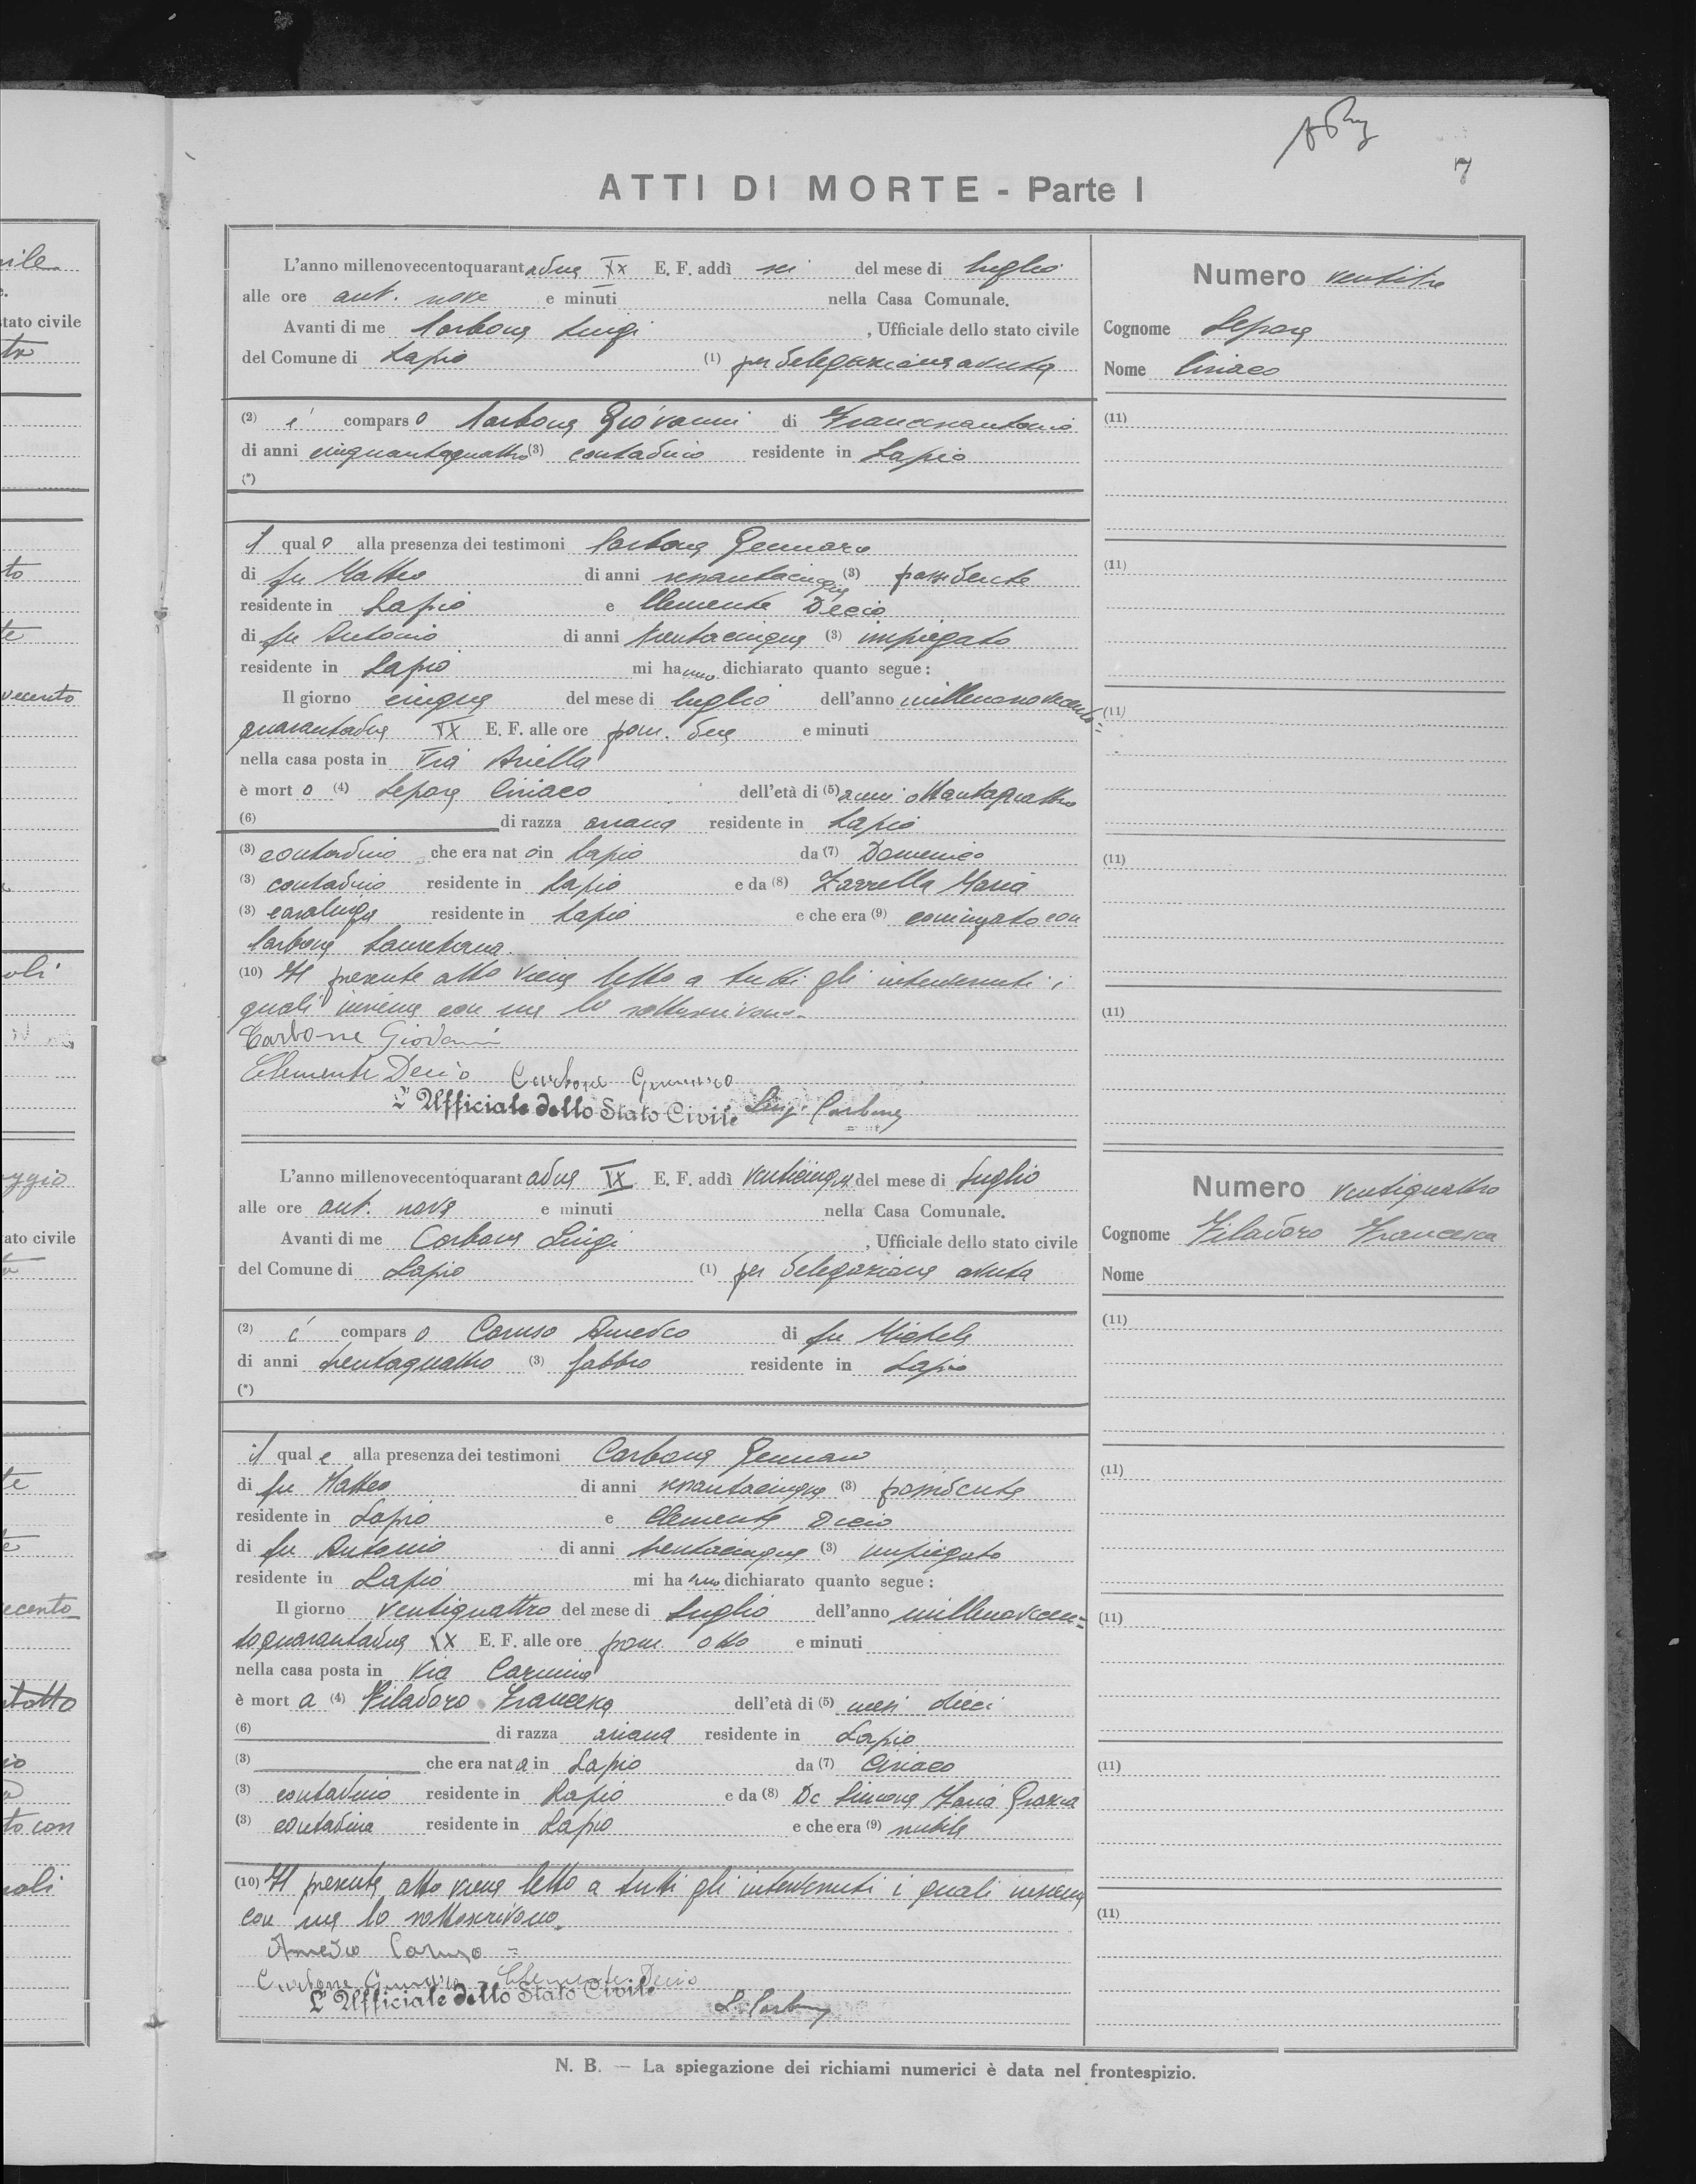 7
ATTI DI MORTE - Parte I
L'anno millenovecentoquarantadue XX E. F. addì sei del mese di luglio
alle ore ant. nove e minuti nella Casa Comunale.
Avanti di me Carbone Luigi, Ufficiale dello stato civile
del Comune di Lapio (1) per delegazione avuta
(2) è comparso Carbone Giovanni di Francescantonio
di anni cinquantaquattro (3) contadino residente in Lapio
(*)
il quale alla presenza dei testimoni Carbone Gennaro
di fu Matteo di anni sessantacinque (3) possidente
residente in Lapio e Clemente Decio
di fu Antonio di anni trentacinque (3) impiegato
residente in Lapio mi hanno dichiarato quanto segue:
Il giorno cinque del mese di luglio dell'anno millenovecento=
quarantadue XX E. F. alle ore pom. due e minuti
nella casa posta in Via Ariella
è morto (4) Lepore Ciriaco dell'età di (5) anni ottantaquattro
(6) di razza ariana residente in Lapio
(3) contadino che era nato in Lapio da (7) Domenico
(3) contadino residente in Lapio e da (8) Zarrella Maria
(3) casalinga residente in Lapio e che era (9) coniugato con
Carbone Lauretana.
(10) Il presente atto viene letto a tutti gli intervenuti i
quali insieme con me lo sottoscrivono.
Carbone Giovanni
Clemente Decio Carbone Gennaro
L'Ufficiale dello Stato Civile Luigi Carbone
Numero ventitre
Cognome Lepore
Nome Ciriaco
(11)
(11)
(11)
(11)
(11)
L'anno millenovecentoquarantadue XX E. F. addì venticinque del mese di Luglio
alle ore ant. nove e minuti nella Casa Comunale.
Avanti di me Carbone Luigi, Ufficiale dello stato civile
del Comune di Lapio (1) per delegazione avuta
(2) è comparso Caruso Amedeo di fu Michele
di anni trentaquattro (3) fabbro residente in Lapio
(*)
il quale alla presenza dei testimoni Carbone Gennaro
di fu Matteo di anni sessantacinque (3) possidente
residente in Lapio e Clemente Decio
di fu Antonio di anni trentacinque (3) impiegato
residente in Lapio mi hanno dichiarato quanto segue:
Il giorno ventiquattro del mese di Luglio dell'anno millenovecen=
toquarantadue XX E. F. alle ore pom. otto e minuti
nella casa posta in Via Carmine
è morta (4) Filadoro Francesca dell'età di (5) mesi dieci
(6) di razza ariana residente in Lapio
(3) che era nata in Lapio da (7) Ciriaco
(3) contadino residente in Lapio e da (8) De Simone Maria Grazia
(3) contadina residente in Lapio e che era (9) nubile
(10) Il presente atto viene letto a tutti gli intervenuti i quali insieme
con me lo sottoscrivono.
Amedeo Caruso =
Carbone Gennaro Clemente Decio
L'Ufficiale dello Stato Civile L. Carbone
Numero ventiquattro
Cognome Filadoro Francesca
Nome
(11)
(11)
(11)
(11)
(11)
N. B. — La spiegazione dei richiami numerici è data nel frontespizio.